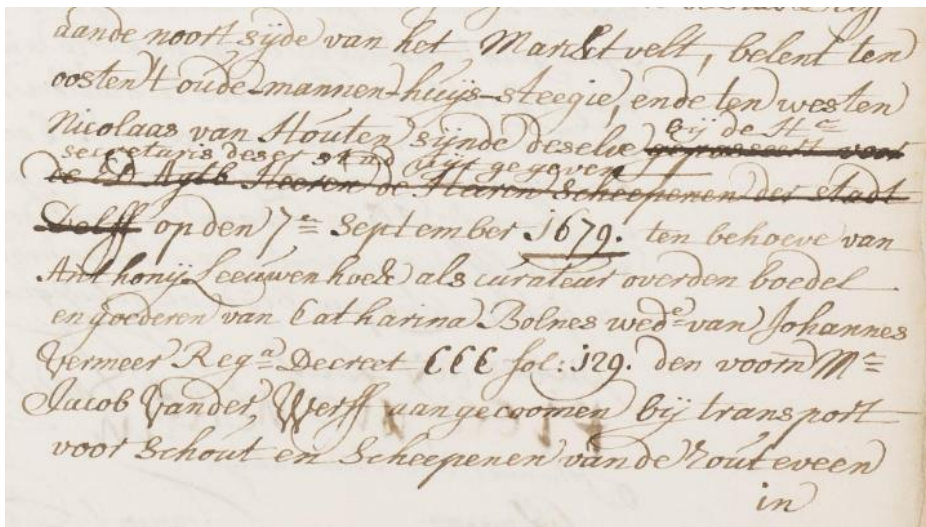 aande noort sijde van het Marckt velt, belent ten
oosten 't oude-mannen-huijs-steegie, ende ten westen
Nicolaas van Houten sijnde deselve bij de Hr
gepasseert voor
secretaris deser stad uijt gegeven
de Ed Agtb Heeren de Heeren Scheepenen der stadt
Delff op den 7en September 1679. ten behoeve van
Anthonij Leeuwenhoek als curateur over den boedel
en goederen van Catharina Bolnes wede van Johannes
Vermeer Rega Decreet CCC fol: 129. den voorn Mr
Jacob vander Werff aangecoomen bij transport
voor Schout en Scheepenen vande Zouteveen
in